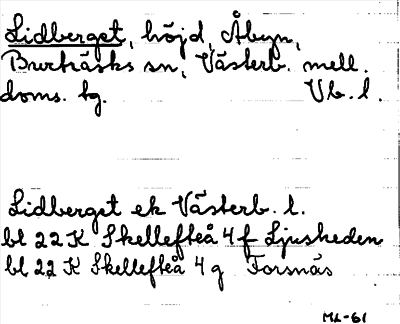 Lidberget, höjd, Åbyn,
Burträsks sn, Västerb. mell.
doms. tg. Vb. l.
Lidberget ek Västerb. l.
bl 22 K Skellefteå 4 f Ljusheden
bl 22 K Skellefteå 4 g Forsnäs
ML-61